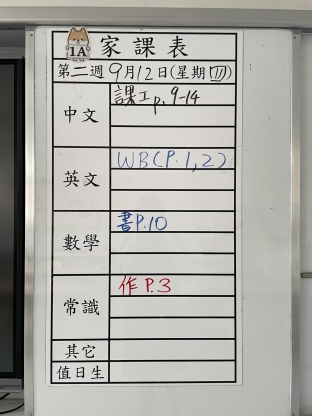 1A 家課表
第二週 9月12日(星期四)
中文 課工 p.9-14
英文 WB(P.1,2)
數學 書P.10
常識 作 P.3
其它
值日生